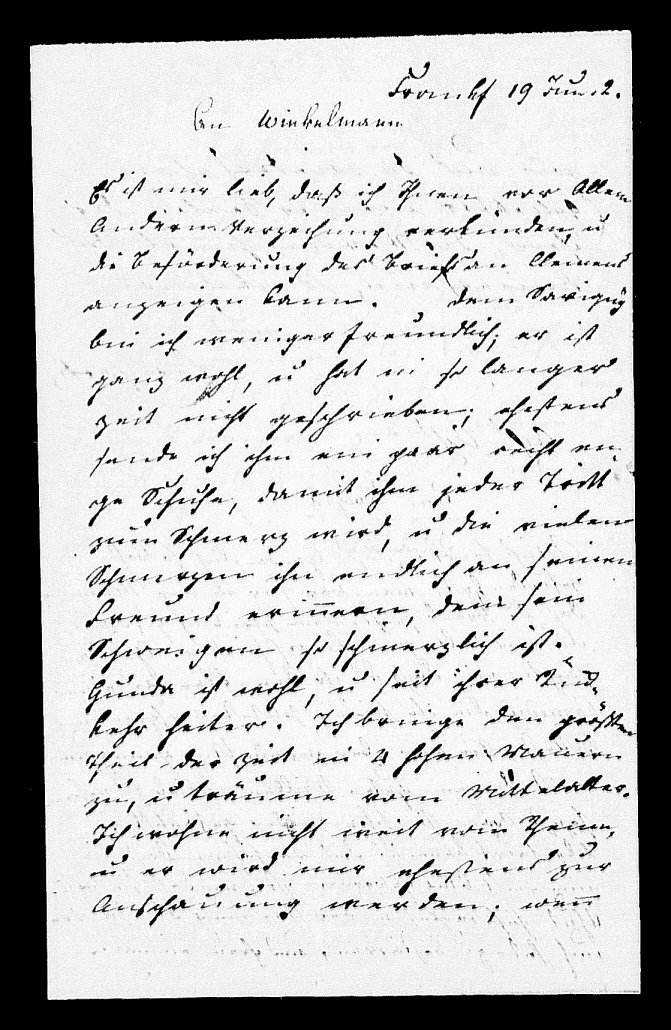 Frankf 19 Jun. 2.
An Winkelmann
Es ist mir lieb, daß ich Ihnen vor Allem
Andern Verzeihung verkünden, u
die Beförderung des Briefs an Clemens
anzeigen kann. Dem Savigny
bin ich weniger freundlich; er ist
ganz wohl, u hat in so langer
Zeit nicht geschrieben; ehestens
sende ich ihm ein paar recht en-
ge Schuhe, damit ihm jeder Tritt
zum Schmerz wird, u die vielen
Schmerzen ihn endlich an seinen
Freund erinnern, dem sein
Schweigen so schmerzlich ist.
Gunda ist wohl, u seit ihrer Rück-
kehr heiter. Ich bringe den größten
Theil der Zeit in 4 hohen Mauern
zu, u träume vom Mittelalter.
Ich wohne nicht weit vom
u er wird mir ehestens zur
Anschauung werden; wenn